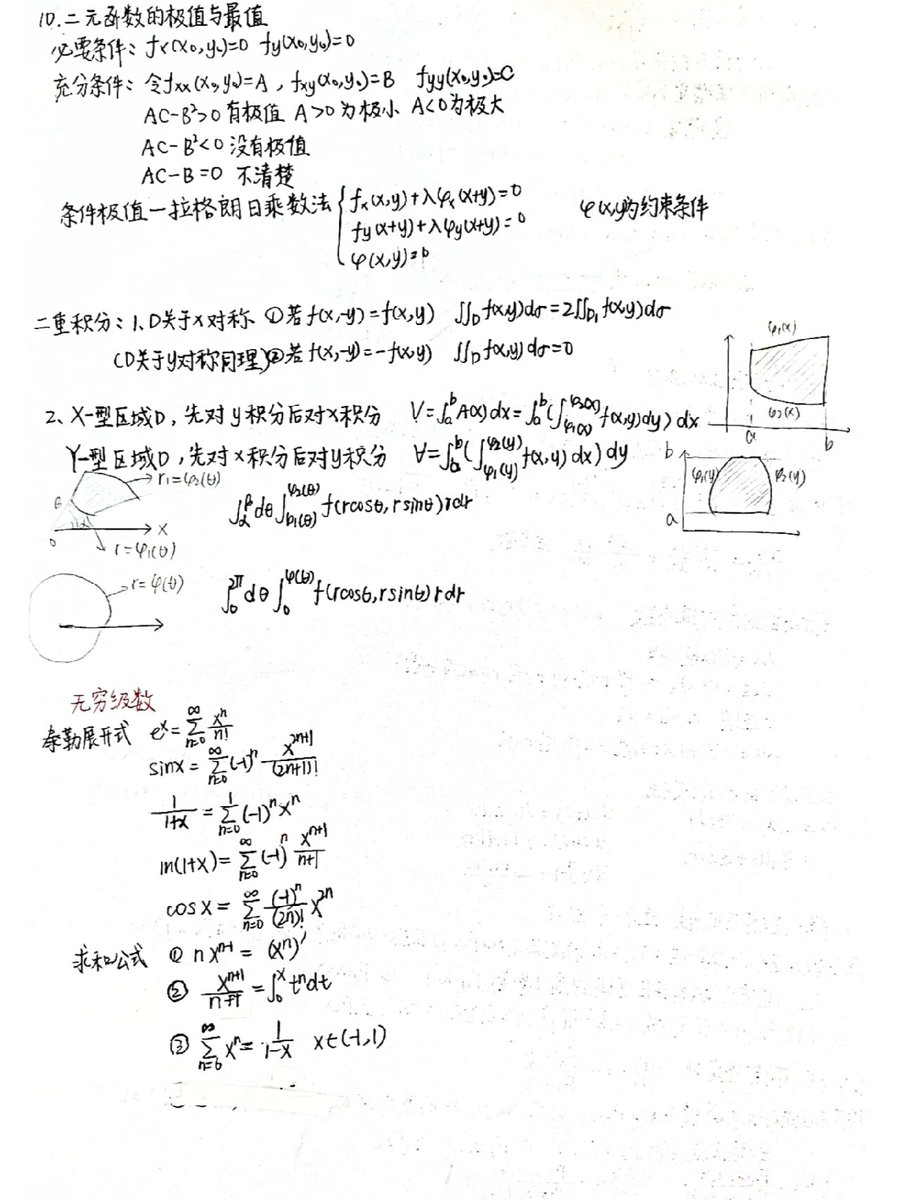 10.二元函数的极值与最值
必要条件: fx(x₀,y₀)=0 fy(x₀,y₀)=0
充分条件: 令fxx(x₀,y₀)=A , fxy(x₀,y₀)=B fyy(x₀,y₀)=C
AC-B²>0 有极值 A>0为极小 A<0为极大
AC-B²<0 没有极值
AC-B=0 不清楚
条件极值—拉格朗日乘数法 { fx(x,y)+λφx(x+y)=0 φ(x,y)为约束条件
fy(x+y)+λφy(x+y)=0
φ(x,y)=0
二重积分: 1、D关于x对称 ①若f(x,-y)=f(x,y) ∬_D f(x,y)dσ=2∬_D₁ f(x,y)dσ
(D关于y对称同理) ②若f(x,-y)=-f(x,y) ∬_D f(x,y)dσ=0
φ₁(x)
φ₂(x)
a b
2、X-型区域D,先对y积分后对x积分 V=∫_a^b A(x)dx=∫_a^b(∫_{φ₁(x)}^{φ₂(x)} f(x,y)dy)dx
Y-型区域D,先对x积分后对y积分 V=∫_a^b(∫_{φ₁(y)}^{φ₂(y)} f(x,y)dx)dy
b φ₁(y) φ₂(y)
a
r₁=φ₂(θ) ∫_α^β dθ∫_{φ₁(θ)}^{φ₂(θ)} f(rcosθ,rsinθ)rdr
0 x
r=φ₁(θ)
r=φ(θ) ∫_0^{2π} dθ∫_0^{φ(θ)} f(rcosθ,rsinθ)rdr
无穷级数
泰勒展开式 e^x=∑_{n=0}^∞ x^n/n!
sinx=∑_{n=0}^∞ (-1)^n x^{2n+1}/(2n+1)!
1/(1+x)=∑_{n=0}^1 (-1)^n x^n
ln(1+x)=∑_{n=0}^∞ (-1)^n x^{n+1}/(n+1)
cosx=∑_{n=0}^∞ (-1)^n/(2n)! x^{2n}
求和公式 ① nx^{n-1}=(x^n)'
② x^{n+1}/(n+1)=∫_0^x t^n dt
③ ∑_{n=0}^∞ x^n=1/(1-x) x∈(-1,1)